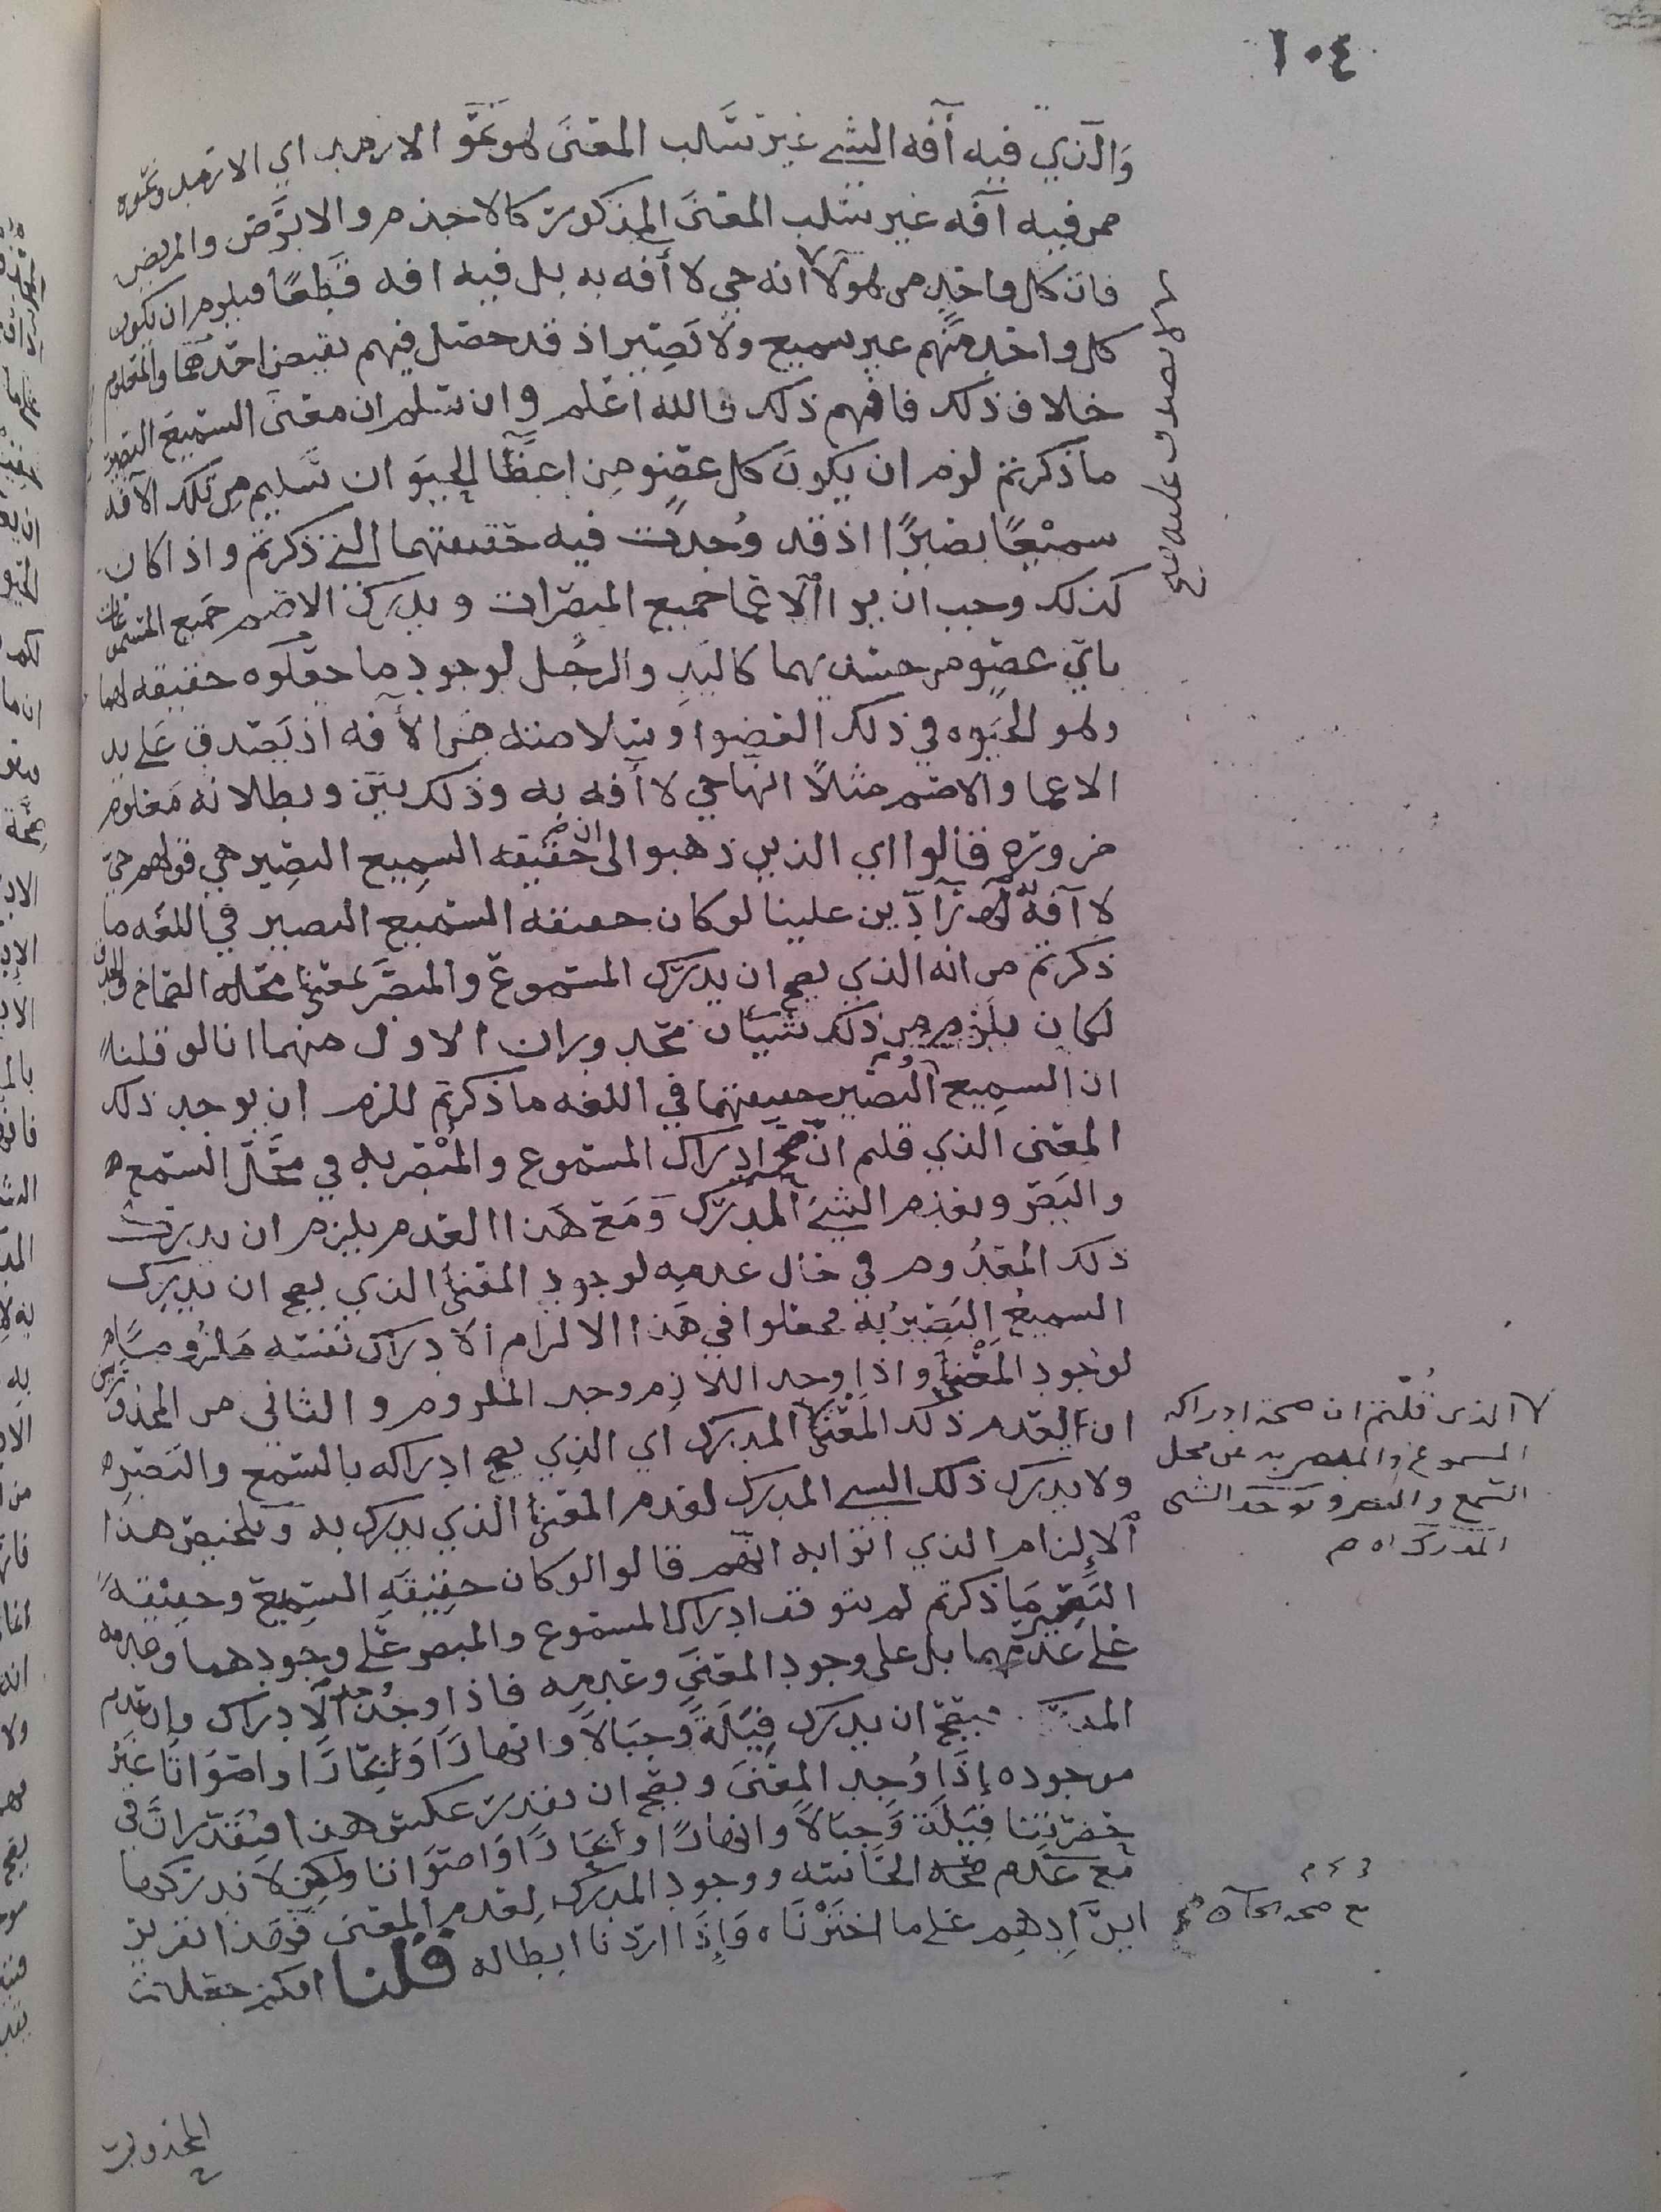 ١٠٤
والذي فيه آفه الشي غير سلب المعنى هو نحو الارمد اي الارمد ونحوه
ممن فيه آفه غير سلب المعنى المذكور كالاجذم والابرص والمريض
فان كل واحد من هولا انه حي لا آفه به بل فيه افه قطعا فيلزم ان يكون
كل واحد منهم غير سميع ولا بصير اذ قد حصل فيهم نقيض احدهما والمعلوم
خلاف ذلك فافهم ذلك والله اعلم وان سلم ان معنى السميع البصير
ما ذكرتم لزم ان يكون كل عضو من اعضا الحيوان سليم من تلك الآفه
سميعا بصيرا اذ قد وجدت فيه حقيقتهما التي ذكرتم واذا كان
كذلك وجب ان يرا الاعما جميع المبصرات ويدرك الاصم جميع المسموعات
باي عضو من جسديهما كاليد والرجل لوجود ما جعلوه حقيقه لهما
وهو الحيوه في ذلك العضو وسلامته من الآفه اذ يصدق على يد
الاعما والاصم مثلا انها حي لا آفه به وذلك بين وبطلانه معلوم
ضروره قالوا اي الذين ذهبوا الى ان حقيقه السميع البصير هي قولهم حي
لا آفة به رآدين علينا لو كان حقيقه السميع البصير في اللغه ما
ذكرتم من انه الذي يصح ان يدرك المسموع والمبصر بمعنى محله الصماخ والحدق
لكان يلزم من ذلك شيئان محذوران الاول منهما انا لو قلنا
ان السميع البصير حقيقتهما في اللغه ما ذكرتم للزم ان يوجد ذلك
المعنى الذي قلتم ان صحة ادراك المسموع والمبصر به في محل السمع
والبصر ويعدم الشئ المدرك ومع هذا العدم يلزم ان يدرك
ذلك المعدوم في حال عدمه لوجود المعنى الذي يصح ان يدرك
السميع البصير به فجعلوا في هذا الالزام الادراك نفسه ملزوما
لوجود المعنى واذا وجد اللازم وجد الملزوم والثاني من المحذورين
ان يعدم ذلك المعنى المدرك اي الذي يصح ادراكه بالسمع والبصر
ولا يدرك ذلك الشي المدرك لعدم المعنى الذي يدرك به وتلخيص هذا
الالزام الذي اتوا به انهم قالوا لو كان حقيقه السميع وحقيقة
البصير ما ذكرتم لم يتوقف ادراك المسموع والمبصر على وجودهما
على عدمهما بل على وجود المعنى وعدمه فاذا وجد وجد الادراك وان عدم
المدرك فيصح ان يدرك فيلة وجبالا وانهارا وبحارا واصواتا غير
موجوده إذا وجد المعنى ويصح ان نقدر عكس هذا فيقدر ان في
حضرتنا فيلة وجبالا وانهارا وبحارا واصواتا ولكن لا ندركها
مع عدم صحه الحاسه ووجود المدرك لعدم المعنى فهذا تقرير
ايرادهم على ما اخترناه وإذا اردنا ابطاله قلنا
المحذورين
لانه لا يصدق عليه صح
الذي قلتم ان صحة ادراك
المسموع والمبصر به عن محل
السمع والبصر ويوجد الشي
المدرك اه م
مع صحه الحاسه صح